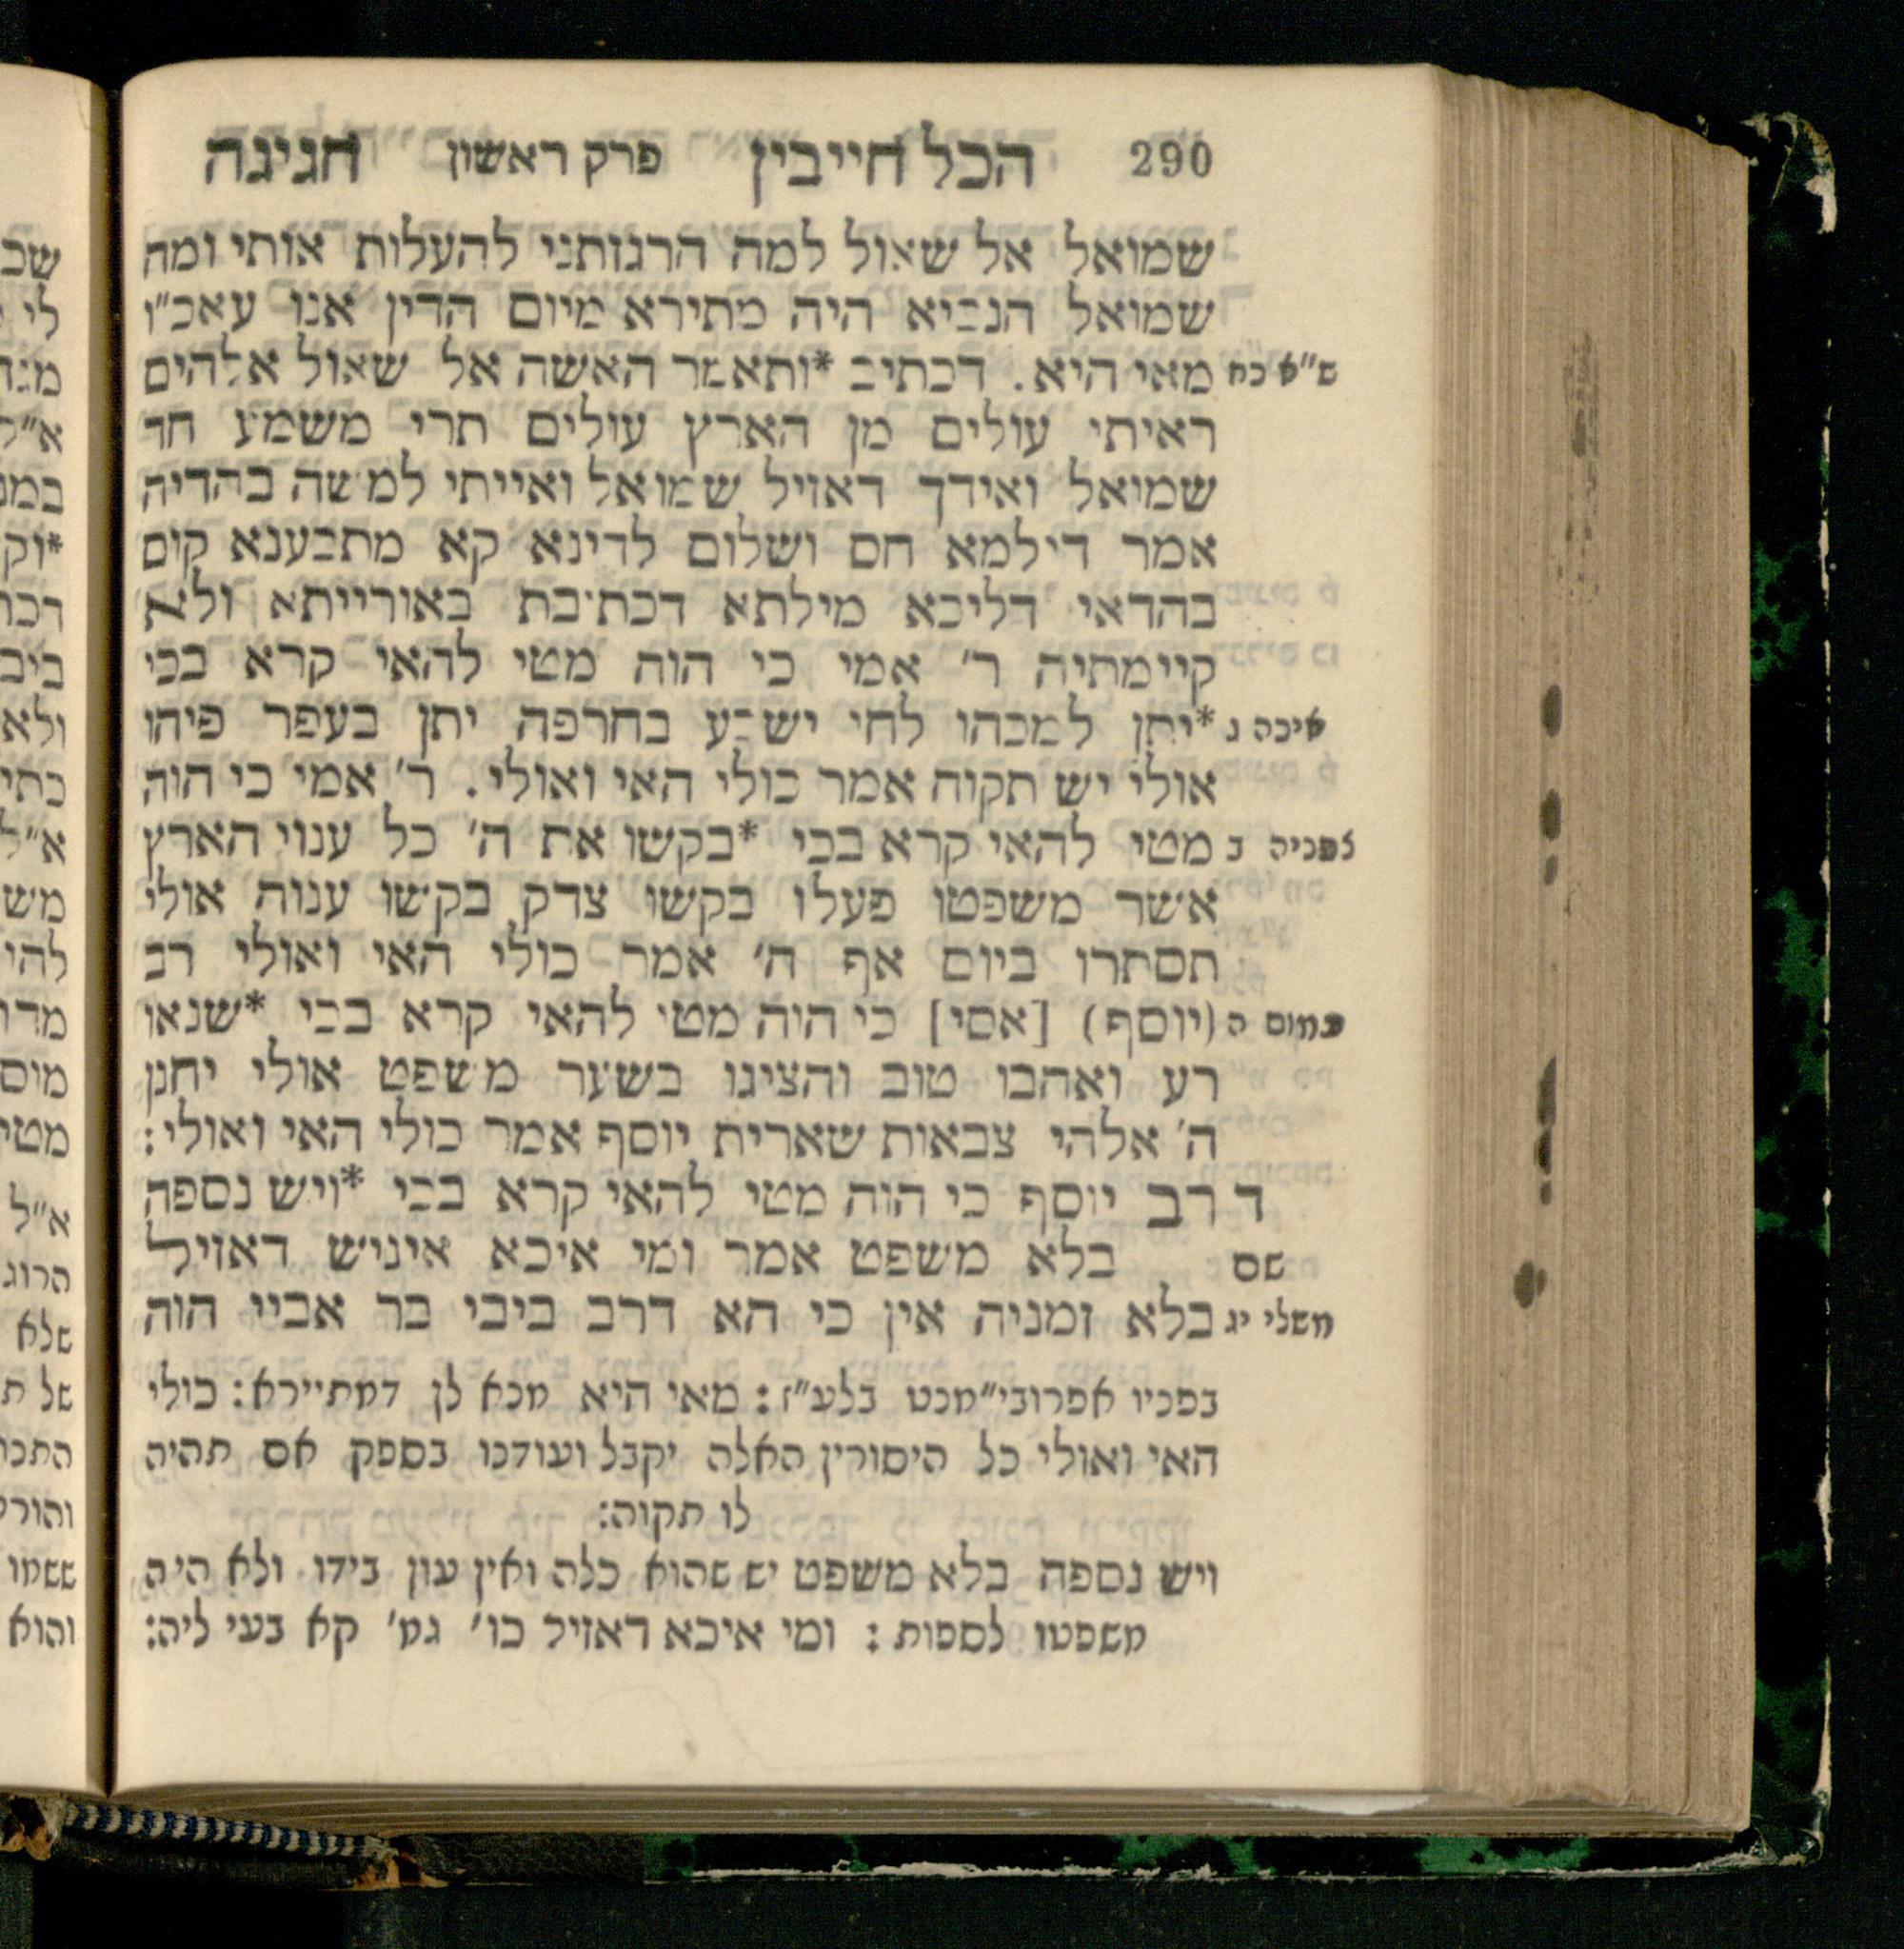 290 הכל חייבין פרק ראשון חגיגה
שמואל אל שאול למה הרגזתני להעלות אותי ומה
שמואל הנביא היה מתירא מיום הדין אנו עאכ״ו
ש״א כח מאי היא. דכתיב *ותאמר האשה אל שאול אלהים
ראיתי עולים מן הארץ עולים תרי משמע חד
שמואל ואידך דאזיל שמואל ואייתי למשה בהדיה
אמר דילמא חס ושלום לדינא קא מתבענא קום
בהדאי דליכא מילתא דכתיבת באורייתא ולא
קיימתיה ר׳ אמי כי הוה מטי להאי קרא בכי
איכה ג *יתן למכהו לחי ישבע בחרפה יתן בעפר פיהו
אולי יש תקוה אמר כולי האי ואולי. ר׳ אמי כי הוה
צפניה ב מטי להאי קרא בכי *בקשו את ה׳ כל ענוי הארץ
אשר משפטו פעלו בקשו צדק בקשו ענוה אולי
תסתרו ביום אף ה׳ אמר כולי האי ואולי רב
עמוס ה (יוסף) [אסי] כי הוה מטי להאי קרא בכי *שנאו
רע ואהבו טוב והציגו בשער משפט אולי יחנן
ה׳ אלהי צבאות שארית יוסף אמר כולי האי ואולי:
ד רב יוסף כי הוה מטי להאי קרא בכי *ויש נספה
שם בלא משפט אמר ומי איכא איניש דאזיל
משלי יג בלא זמניה אין כי הא דרב ביבי בר אביי הוה
בפניו אפרובי״מנט בלע״ז: מאי היא מנא לן דמתיירא: כולי
האי ואולי כל היסורין האלה יקבל ועודנו בספק אם תהיה
לו תקוה:
ויש נספה בלא משפט יש שהוא כלה ואין עון בידו ולא היה
משפטו לספות: ומי איכא דאזיל כו׳ גמ׳ קא בעי ליה: